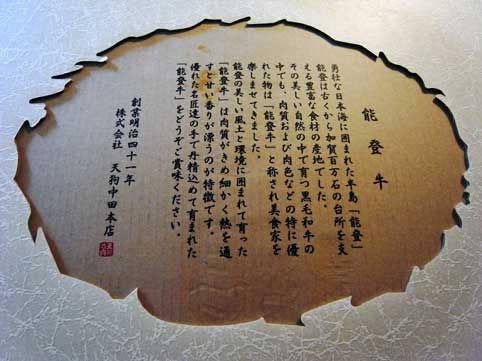 能登牛
勇壮な日本海に囲まれた半島「能登」
能登は古くから加賀百万石の台所を支
える豊富な食材の産地でした。
その美しい自然の中で育つ黒毛和牛の
中でも、肉質および肉色などの特に優
れた物は「能登牛」と称され美食家を
楽しませてきました。
能登の美しい風土と環境に囲まれて育った
「能登牛」は肉質がきめ細かく熱を通
すと甘い香りが漂うのが特徴です。
優れた名匠達の手で丹精込めて育まれた
「能登牛」をどうぞご賞味ください。
創業明治四十一年
株式会社 天狗中田本店